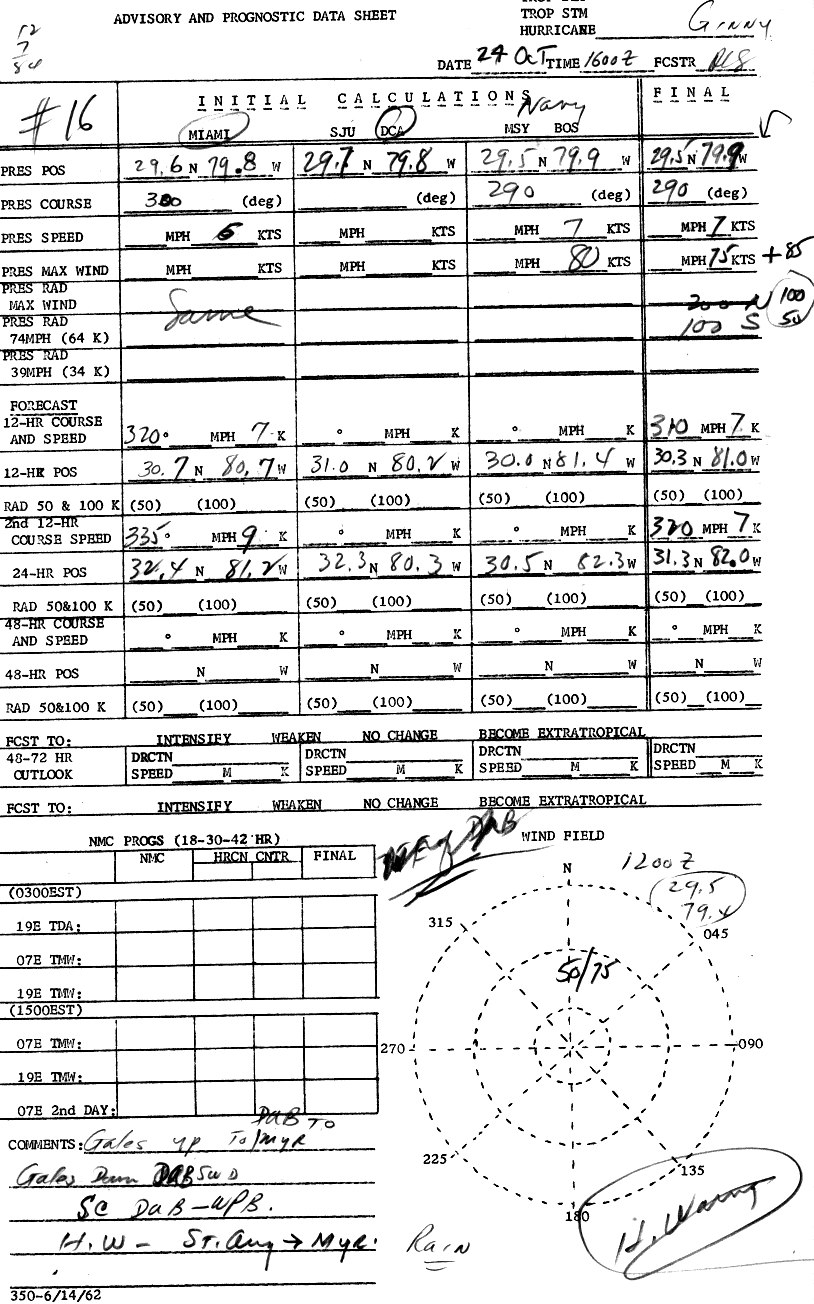 TROP STM
ADVISORY AND PROGNOSTIC DATA SHEET
HURRICANE Ginny
12
7
84
DATE 24 Oct TIME 1600Z FCSTR
#16
INITIAL CALCULATIONS FINAL
Navy
MIAMI SJU DCA MSY BOS
PRES POS 29.6 N 79.8 W 29.7 N 79.8 W 29.5 N 79.9 W 29.5 N 79.9 W
PRES COURSE 300 (deg) (deg) 290 (deg) 290 (deg)
PRES SPEED MPH 6 KTS MPH KTS MPH 7 KTS MPH 7 KTS
PRES MAX WIND MPH KTS MPH KTS MPH 80 KTS MPH 75 KTS +85
PRES RAD
MAX WIND Same 200 N 100
PRES RAD 100 S 50
74MPH (64 K)
PRES RAD
39MPH (34 K)
FORECAST
12-HR COURSE
AND SPEED 320° MPH 7 K ° MPH K ° MPH K 310 MPH 7 K
12-HR POS 30.7 N 80.7 W 31.0 N 80.2 W 30.0 N 81.4 W 30.3 N 81.0 W
RAD 50 & 100 K (50) (100) (50) (100) (50) (100) (50) (100)
2nd 12-HR
COURSE SPEED 335° MPH 9 K ° MPH K ° MPH K 320 MPH 7 K
24-HR POS 32.4 N 81.2 W 32.3 N 80.3 W 30.5 N 82.3 W 31.3 N 82.0 W
RAD 50&100 K (50) (100) (50) (100) (50) (100) (50) (100)
48-HR COURSE
AND SPEED ° MPH K ° MPH K ° MPH K ° MPH K
48-HR POS N W N W N W N W
RAD 50&100 K (50) (100) (50) (100) (50) (100) (50) (100)
FCST TO: INTENSIFY WEAKEN NO CHANGE BECOME EXTRATROPICAL
48-72 HR DRCTN DRCTN DRCTN DRCTN
OUTLOOK SPEED M K SPEED M K SPEED M K SPEED M K
FCST TO: INTENSIFY WEAKEN NO CHANGE BECOME EXTRATROPICAL
NMC PROGS (18-30-42 HR)
NMC HRCN CNTR FINAL
(0300EST)
19E TDA:
07E TMW:
19E TMW:
(1500EST)
07E TMW:
19E TMW:
07E 2nd DAY:
of DAB
WIND FIELD
1200Z
29.5
79.4
N
315 045
50/75
270 090
225 135
180
DAB To
COMMENTS: Gales up To Myr
Gales Down DAB SWD
SC DAB-WPB.
H.W - St. Aug → Myr.
Rain
H. Warng
350-6/14/62